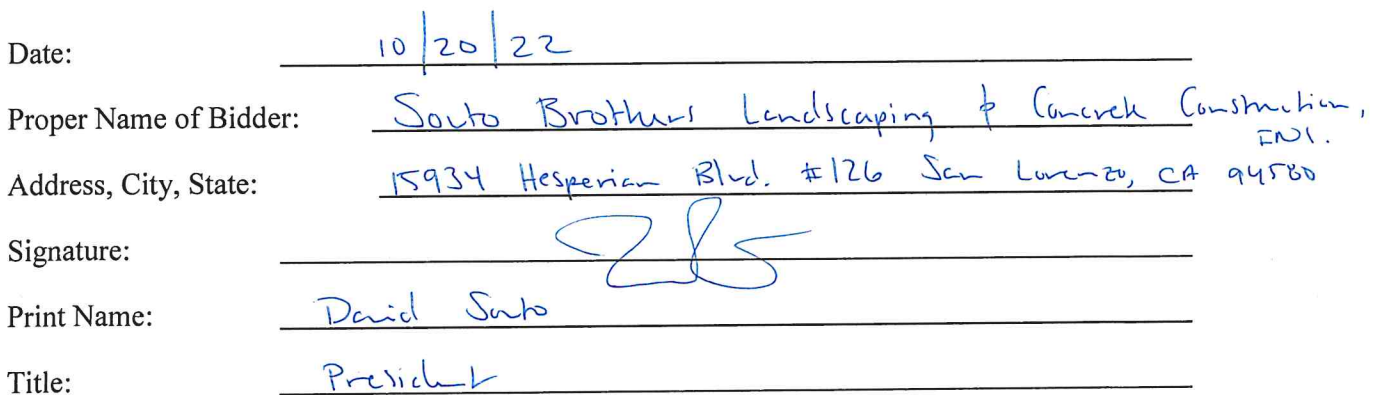 Date: 10/20/22
Proper Name of Bidder: Souto Brothers Landscaping & Concrete Construction,
INC.
Address, City, State: 15934 Hesperian Blvd. #126 San Lorenzo, CA 94580
Signature:
Print Name: David Souto
Title: President